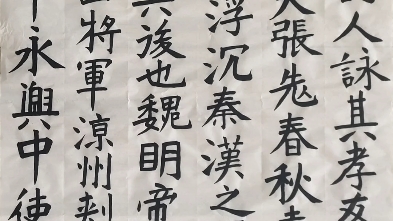 人詠其孝友
張老春秋
浮沉秦漢之
後也魏明帝
將軍涼州刺
永興中使